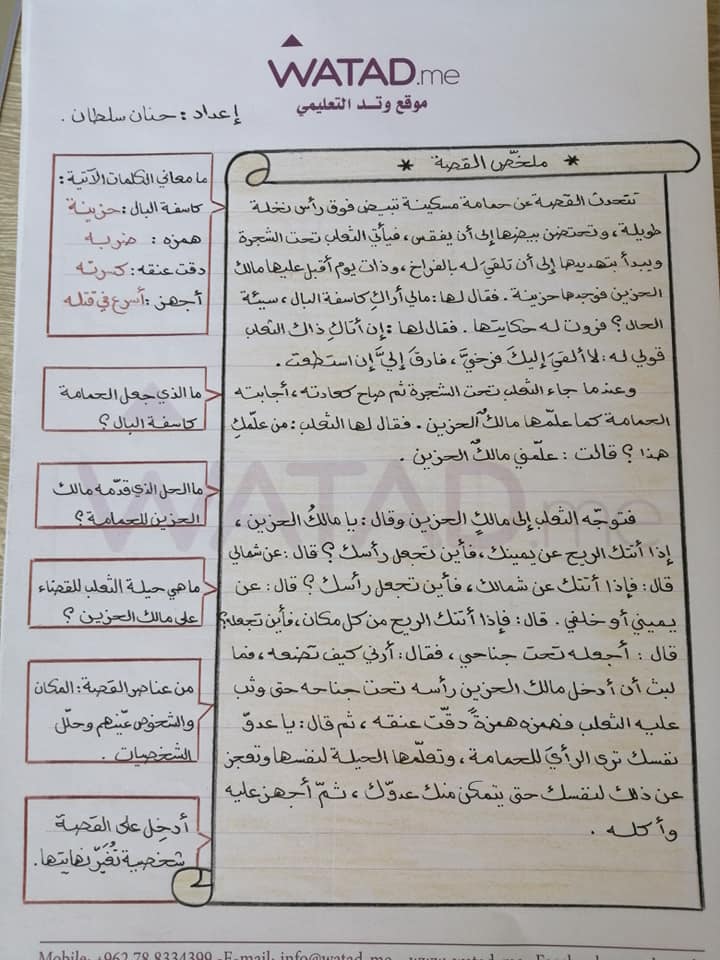 WATAD.me
موقع وتد التعليمي
إعداد : حنان سلطان .
* ملخّص القصة *
تتحدث القصة عن حمامة مسكينة تبيض فوق رأس نخلة
طويلة ، وتحتضن بيضها إلى أن يفقس ، فيأتي الثعلب تحت الشجرة
ويبدأ بتهديدها إلى أن تلقي له بالفراخ ، وذات يوم أقبل عليها مالك
الحزين فوجدها حزينة . فقال لها : مالي أراكِ كاسفة البال ، سيئة
الحال ؟ فروت له حكايتها . فقال لها : إن أتاكِ ذاك الثعلب
قولي له : لا ألقي إليكَ فرخيَّ ، فارقَ إليَّ إن استطعت .
وعندما جاء الثعلب تحت الشجرة ثم صاح كعادته ، أجابته
الحمامة كما علمّها مالكٌ الحزين . فقال لها الثعلب : من علّمكِ
هذا ؟ قالت : علّمني مالكٌ الحزين .
فتوجّه الثعلب إلى مالكٍ الحزين وقال : يا مالكُ الحزين ،
إذا أتتك الريح عن يمينك ، فأين تجعل رأسك ؟ قال : عن شمالي
قال : فإذا أتتك عن شمالك ، فأين تجعل رأسك ؟ قال : عن
يميني أو خلفي . قال : فإذا أتتك الريح من كل مكان ، فأين تجعله؟
قال : أجعله تحت جناحي ، فقال : أرني كيف تصنعه ، فما
لبث أن أدخل مالك الحزين رأسه تحت جناحه حتى وثب
عليه الثعلب فهمزه همزةً دقّت عنقه ، ثم قال : يا عدوّ
نفسك ترى الرأيَ للحمامة ، وتعلّمها الحيلة لنفسها وتعجز
عن ذلك لنفسك حتى يتمكن منك عدوّك ، ثمّ أجهز عليه
وأكله .
ما معاني الكلمات الآتية :
كاسفة البال : حزينة
همزه : ضربه
دقت عنقه : كسرته
أجهز : أسرع في قتله
ما الذي جعل الحمامة
كاسفة البال ؟
ما الحل الذي قدّمه مالك
الحزين للحمامة ؟
ما هي حيلة الثعلب للقضاء
على مالك الحزين ؟
من عناصر القصة : المكان
والشخوص عيّنهم وحلّل
الشخصيات .
أدخِل على القصة
شخصية تُغَيّر نهايتها .
WATAD.me
Mobile: +962 78 8334399 -E-mail: info@watad.me